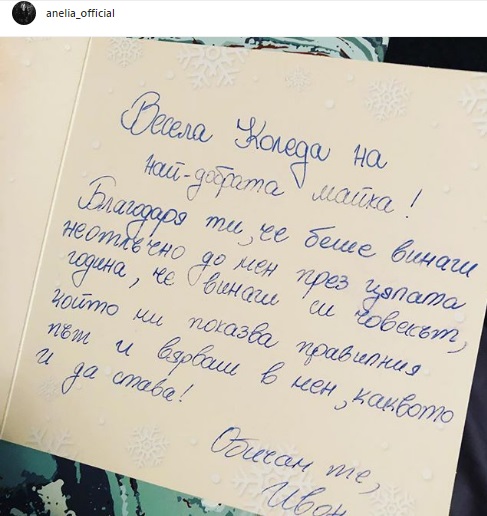 anelia_official
Весела Коледа на
най-добрата майка!
Благодаря ти, че беше винаги
неотлъчно до мен през цялата
година, че винаги си човекът,
който ми показва правилния
път и вярваш в мен, каквото
и да става!
Обичам те,
Ивон